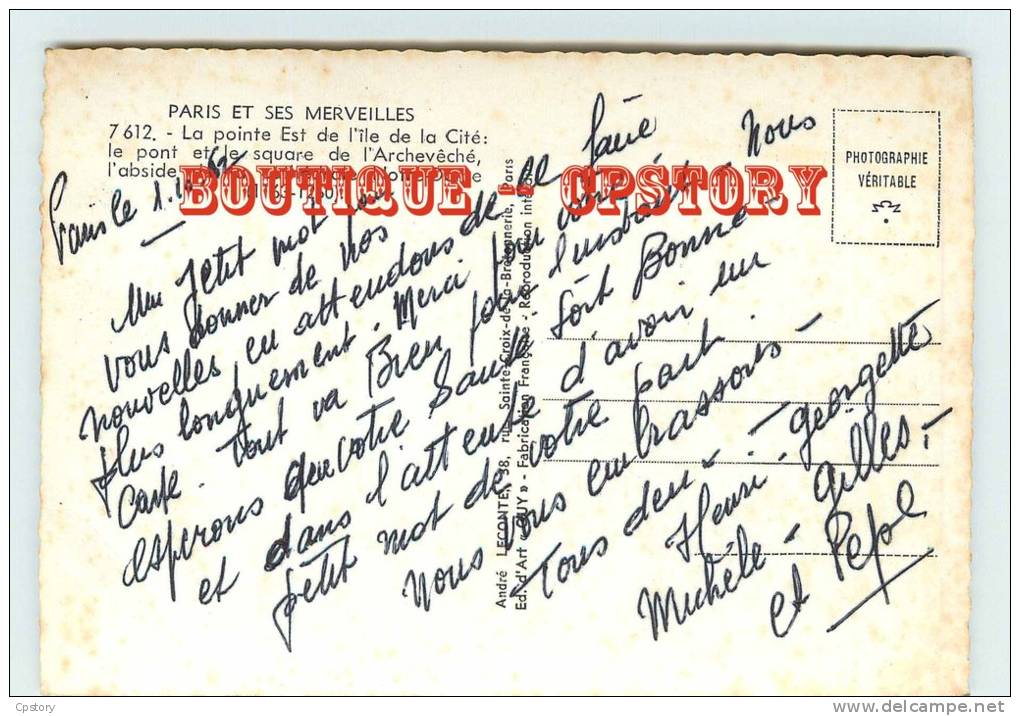 PARIS ET SES MERVEILLES
7612. - La pointe Est de l'île de la Cité:
le pont et le square de l'Archevêché,
l'abside
BOUTIQUE - CPSTORY
Paris le
Un petit mot pour
vous donner de nos
nouvelles en attendons de le faire
plus longuement. Merci pour votre
Carte. Tout va Bien pour l'instant. Nous
esperons que votre Santé soit Bonne -
et dans l'attente d'avoir un
petit mot de votre part
Nous vous embrassons -
Tous deux. - Georgette
Henri - Gilles -
Michèle - et Pépé
PHOTOGRAPHIE
VÉRITABLE
André LECONTE, 38, rue Sainte-Croix-de-la-Bretonnerie, Paris
Ed. d'Art « GUY » - Fabrication Française - Reproduction interdite
Cpstory
www.delcampe.net